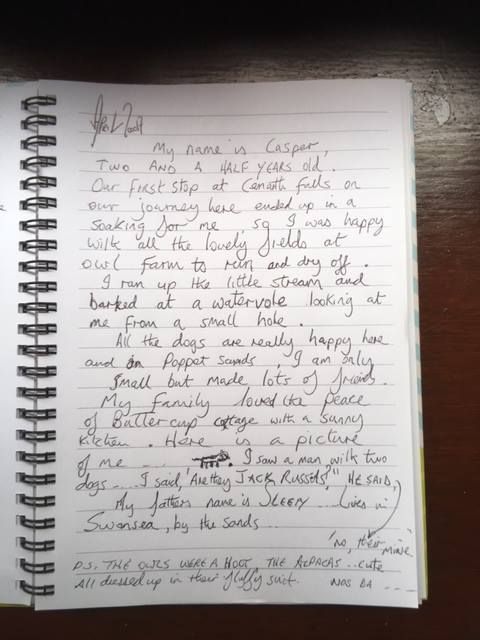 My name is Casper,
TWO AND A HALF YEARS old.
Our first stop at Cenarth falls on
our journey here ended up in a
soaking for me, so I was happy
with all the lovely fields at
owl farm to run and dry off.
I ran up the little stream and
barked at a watervole looking at
me from a small hole.
All the dogs are really happy here
and in Poppet sands, I am only
small but made lots of friends.
My family loved the peace
of Buttercup cottage with a sunny
kitchen. Here is a picture
of me .... . I saw a man with two
dogs ... I said, "Are they JACK RUSSELS?" HE SAID,
My fathers name is SLEEPY .... lives in
Swansea, by the sands ...
"no, their mine"
P.S. THE OWLS WERE A HOOT, THE ALPACAS .. cute
All dressed up in their fluffy suit. NOS DA ....